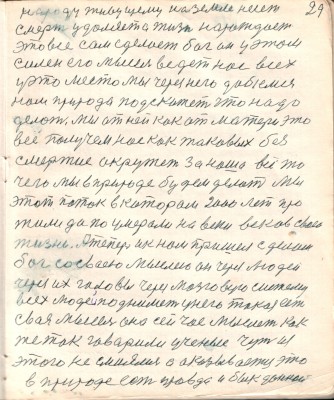 29
народу живущему на земле несет
смерт удоляет а жизн нарождает
это все сам сделает бог он у этом
силен его мысля ведет нас всех
у это место мы через него добемся
нам природа подскажет што надо
делат. Мы от ней как от матери это
всё получем нас как таковых без
смертие окружет За наша всё то
чего мы в природе будем делат Мы
этот поток в котором 2000 лет про
жили да по умерали на веки веков своею
жизню. А тепер ик нам пришел с делам
бог со своею мыслею он через людей
через их головы через мозговую систему
всех людей поднимет у него такая ест
свая мысля она сейчас мыслит как
же так говарили ученые чут из
этого не смеялися а оказывается это
в природе ест правда и быт данной